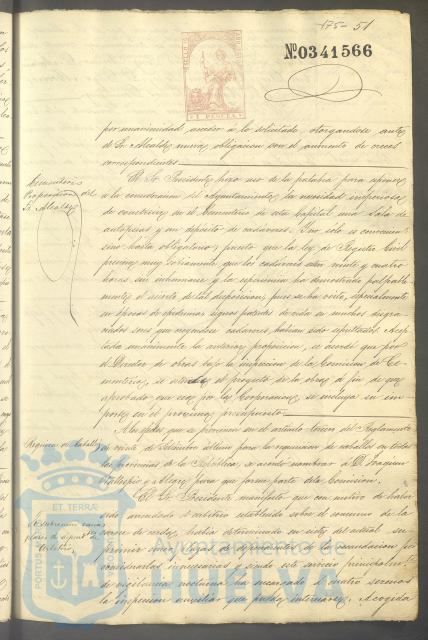 175- 51
Nº.0341566
por unanimidad acceder á lo solicitado, otorgandose antes
de Sr. Alcalde nueva obligacion con el aumento de creces
correspondientes.
El Sr. Presidente hizo uso de la palabra para esponer
á la consideracion del Ayuntamiento, la necesidad imperiosa
de construirse en el Cementerio de esta Capital una sala de
autopsias y un deposito de cadaveres. No solo es conveniente
sino hasta obligatorio, puesto que la ley de Registro Civil
previene muy sabiamente, que los cadaveres esten veinte y cuatro
horas sin inhumarse y la esperiencia ha demostrado palpable
mente, el acierto de tal disposicion, pues se ha visto, especialmente
en épocas de epidemias signos patentes de vida en muchos desgra-
ciados seres que creyendose cadaveres habian sido sepultados. Acep
tada unanimemente la anterior proposicion, se acordó que por
el Director de obras bajo la inspeccion de la Comision de Ce-
menterios, se el proyecto de la obra, á fin de que
aprobado que sea por la Corporacion, se incluya su im-
porte en el proximo presupuesto.
A los efectos que se previenen en el articulo tercero del Reglamento
en veinte de Setiembre último para la requisicion de caballos en todas
las provincias de la Republica, se acordó nombrar á D. Joaquin
y Alegre para que forme parte de la Comision.
El Sr. Presidente manifestó que con motivo de haber
sido arrendado el arbitrio establecido sobre el consumo de la
carne de cerdo, habia determinado en siete del actual su-
primir cinco plazas de dependientes de la recaudacion por
considerarlas innecesarias y siendo este servicio principalmente
de vigilancia nocturna ha encargado á cuatro serenos
la inspeccion auxiliar que puedan interesarse. Acogida
del
Sr. Alcalde
Requisa de caballos
varias
plazas de
Arbitrios
ET TERRA
PORTUS
Ayuntamiento de
HUELVA